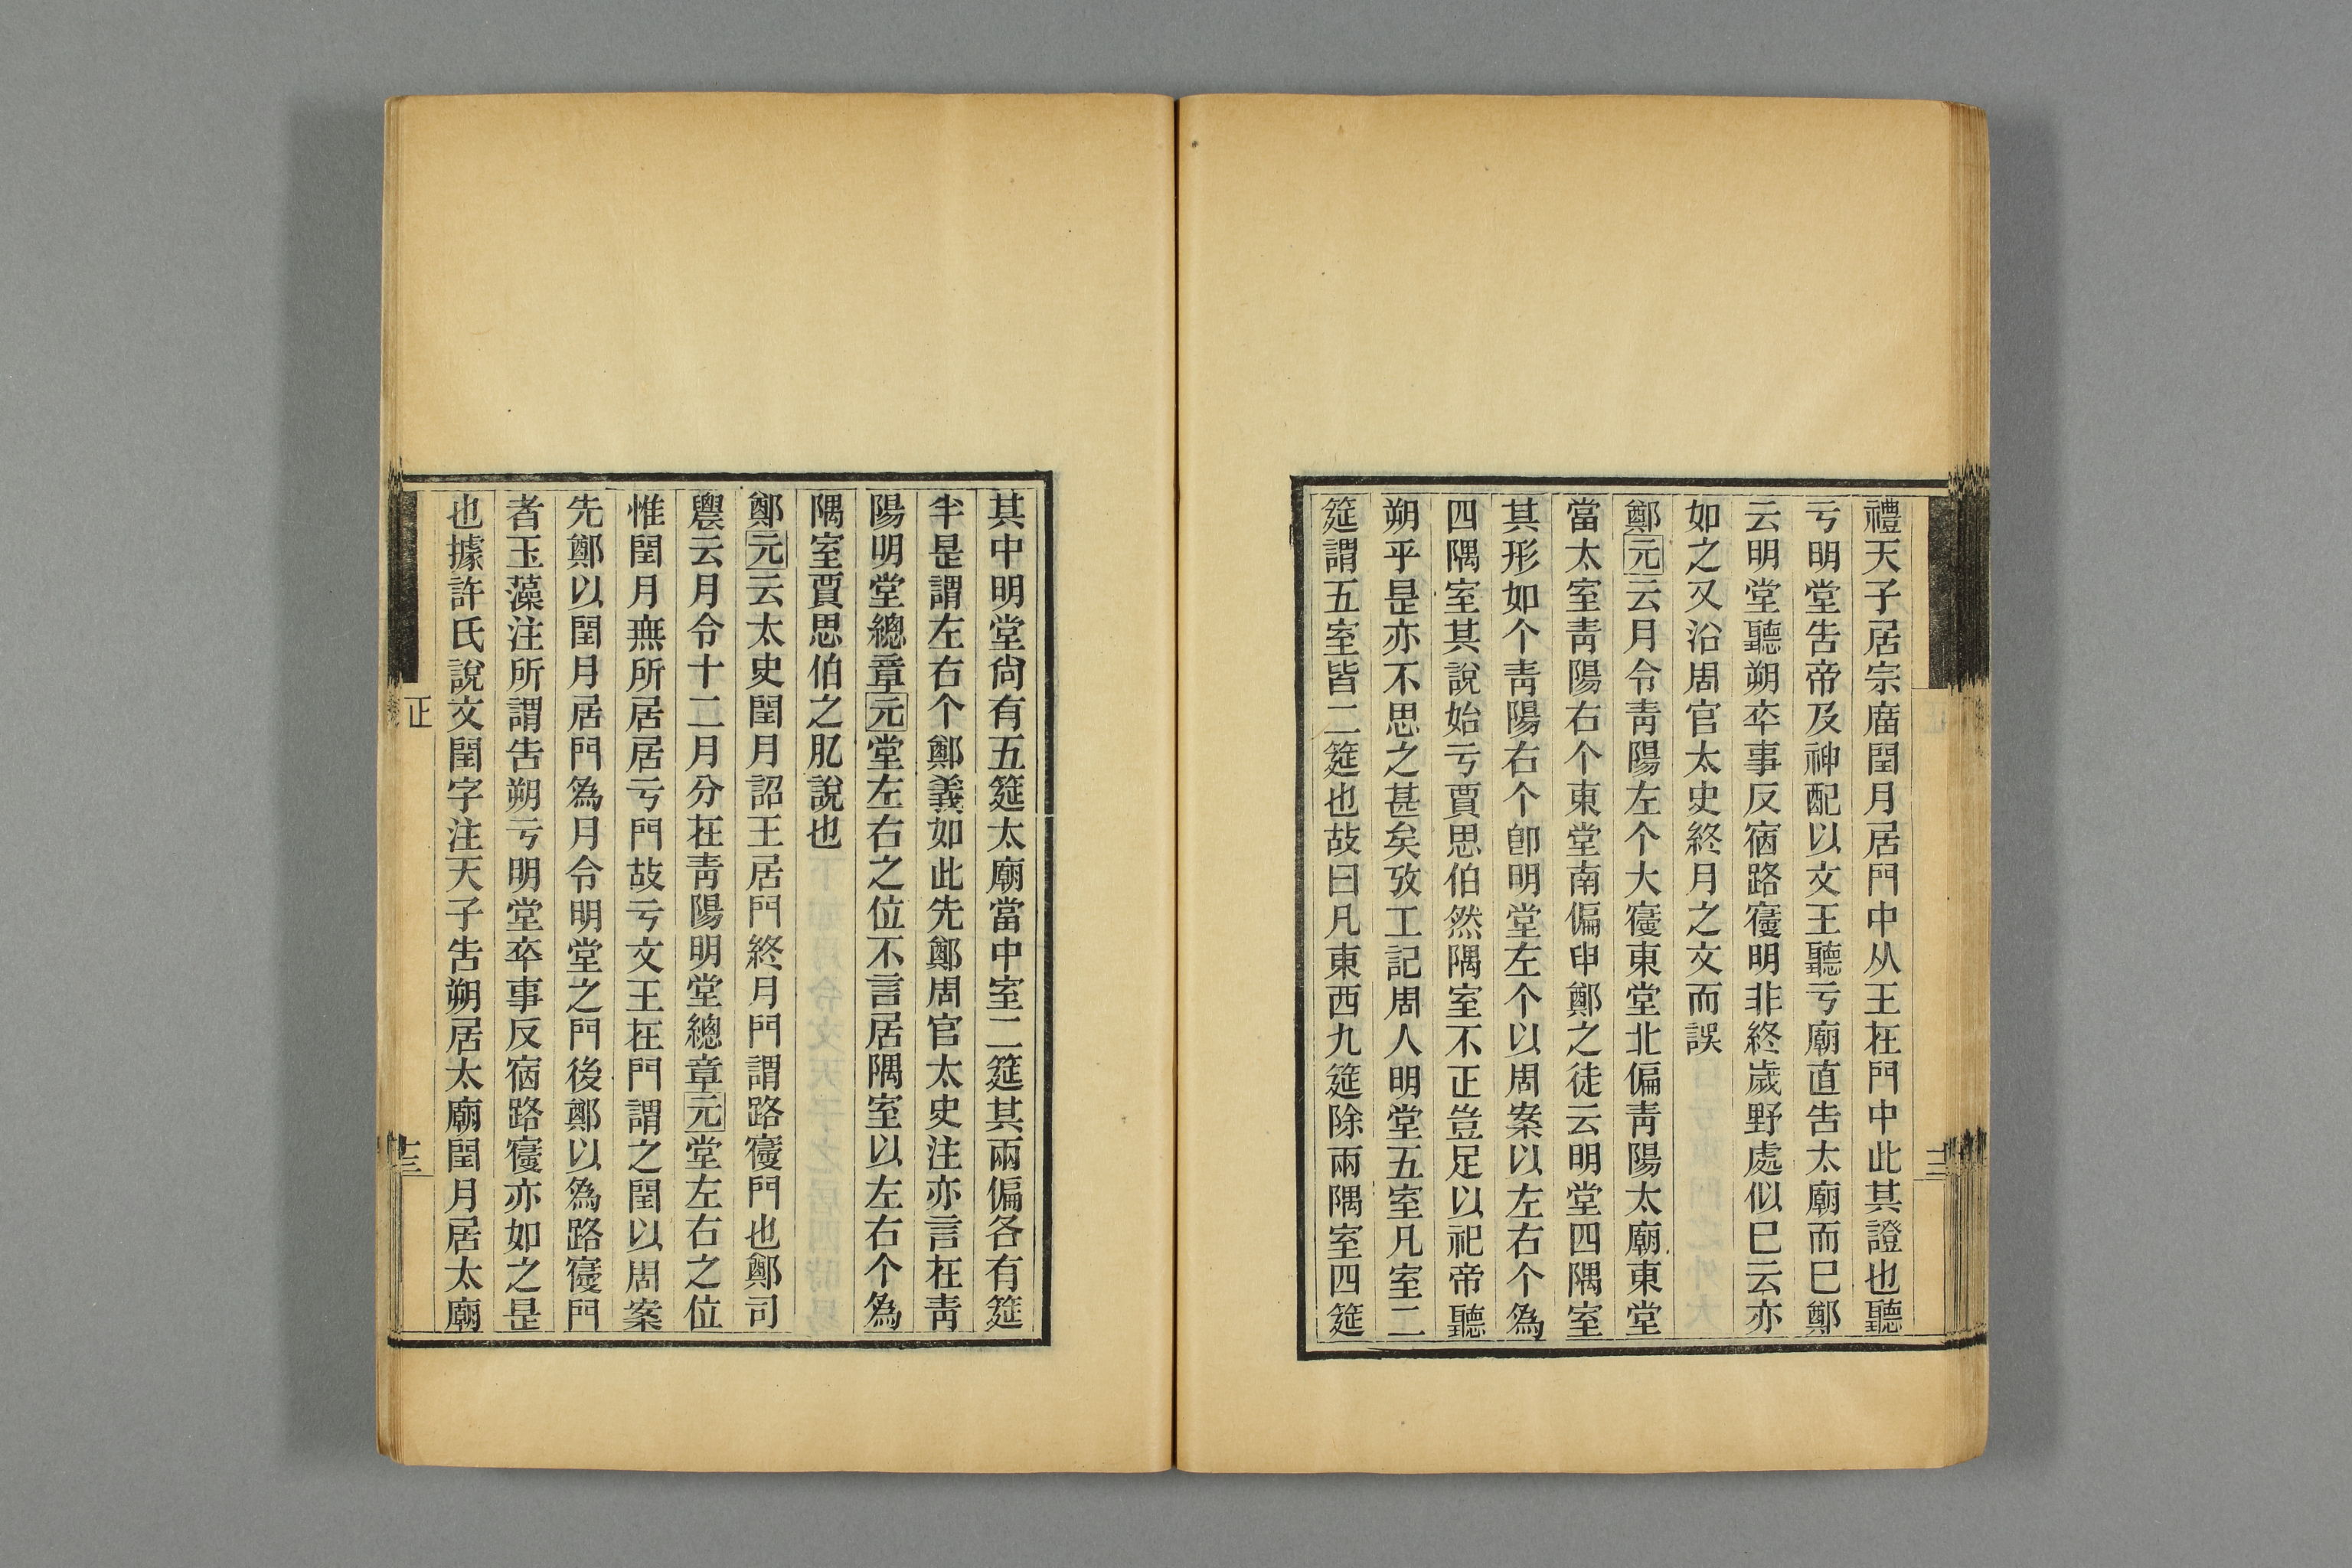 禮天子居宗庿閏月居門中从王在門中此其證也聽
亏明堂告帝及神配以文王聽亏廟直告太廟而巳鄭
云明堂聽朔卒事反宿路寢明非終歲野處似巳云亦
如之又沿周官太史終月之文而誤
鄭元云月令靑陽左个大寢東堂北偏靑陽太廟東堂
當太室靑陽右个東堂南偏申鄭之徒云明堂四隅室
其形如个靑陽右个卽明堂左个以周案以左右个爲
四隅室其說始亏賈思伯然隅室不正豈足以祀帝聽
朔乎是亦不思之甚矣攷工記周人明堂五室凡室二
筵謂五室皆二筵也故曰凡東西九筵除兩隅室四筵
其中明堂尙有五筵太廟當中室二筵其兩偏各有筵
半是謂左右个鄭義如此先鄭周官太史注亦言在靑
陽明堂總章元堂左右之位不言居隅室以左右个爲
隅室賈思伯之肊說也
鄭元云太史閏月詔王居門終月門謂路寢門也鄭司
農云月令十二月分在靑陽明堂總章元堂左右之位
惟閏月無所居居亏門故亏文王在門謂之閏以周案
先鄭以閏月居門爲月令明堂之門後鄭以爲路寢門
者玉藻注所謂告朔亏明堂卒事反宿路寢亦如之是
也據許氏說文閏字注天子告朔居太廟閏月居太廟
正
十三